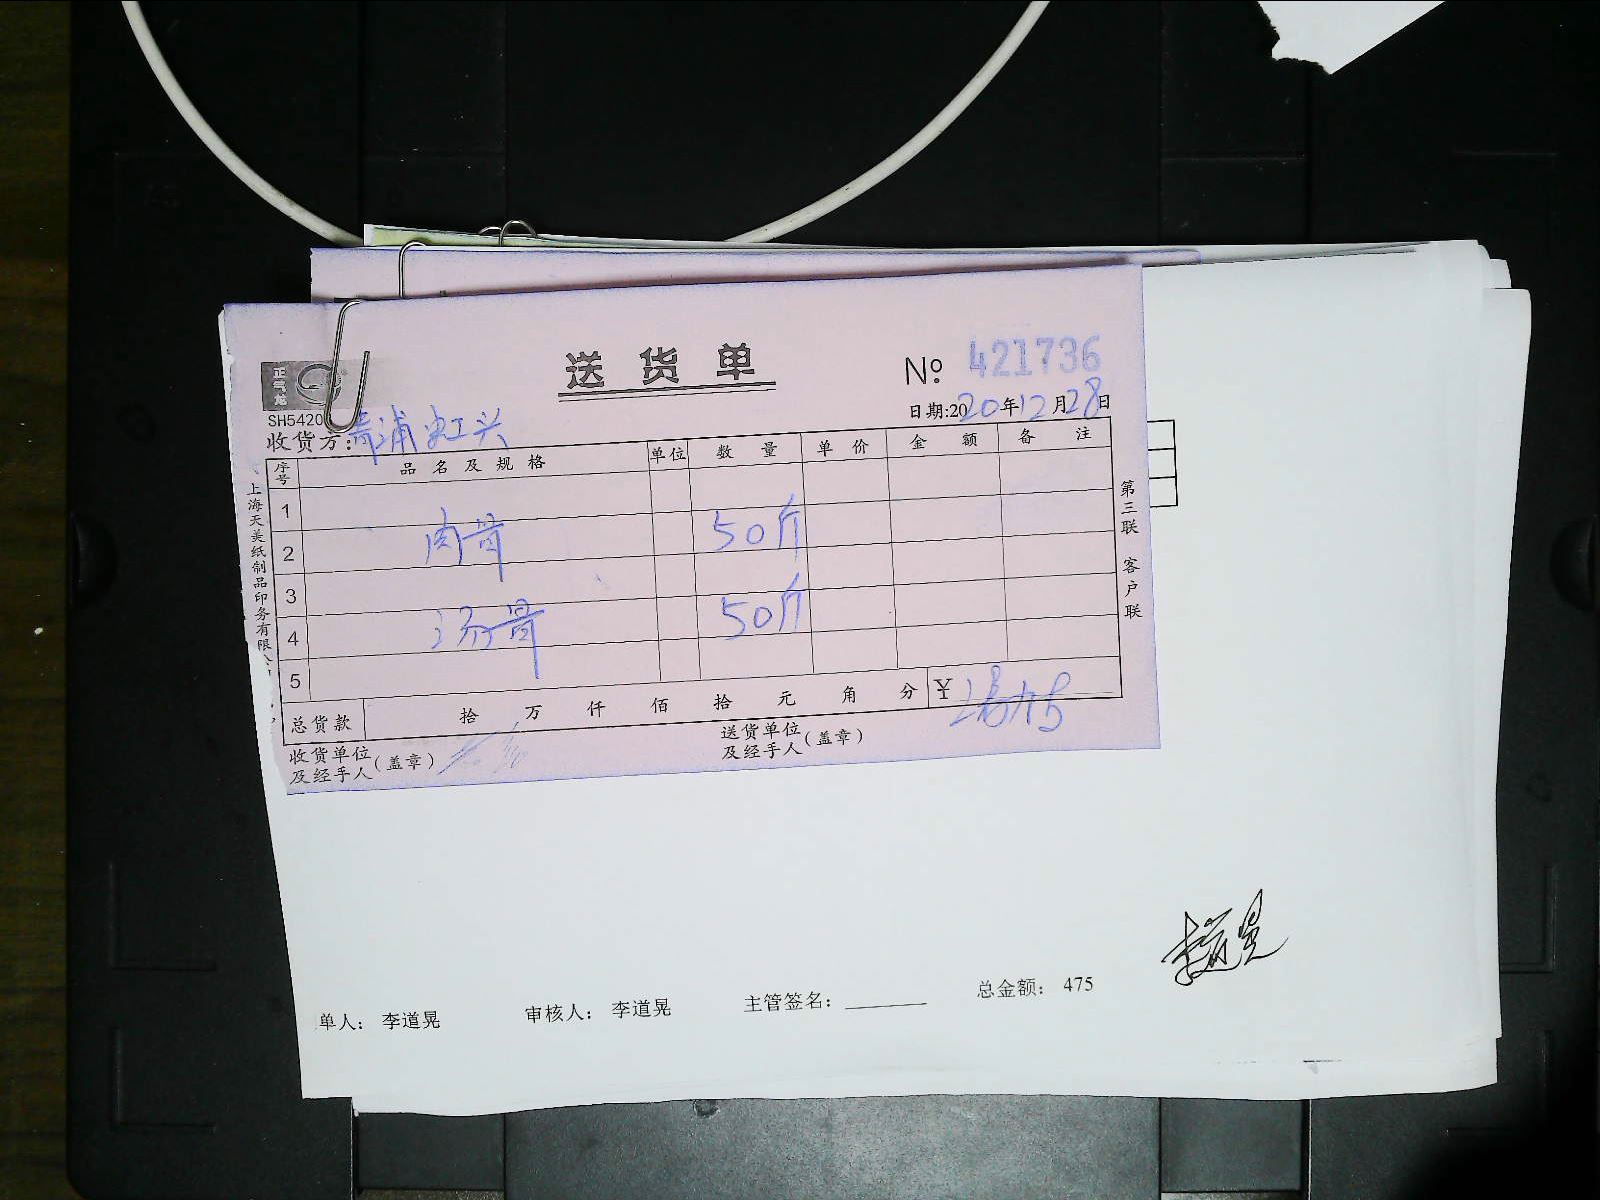 送货单
№ 421736
正章龙
SH5420
日期:2020年12月28日
收货方:青浦虹头
序号 品名及规格 单位 数量 单价 金额 备注
1
2 肉骨 50斤
3
4 汤骨 50斤
5
总货款 拾 万 仟 佰 拾 元 角 分 ¥
收货单位及经手人(盖章)
送货单位及经手人(盖章)
上海天美纸制品印务有限公
第三联 客户联
单人: 李道晃 审核人: 李道晃 主管签名: 总金额: 475
李道晃